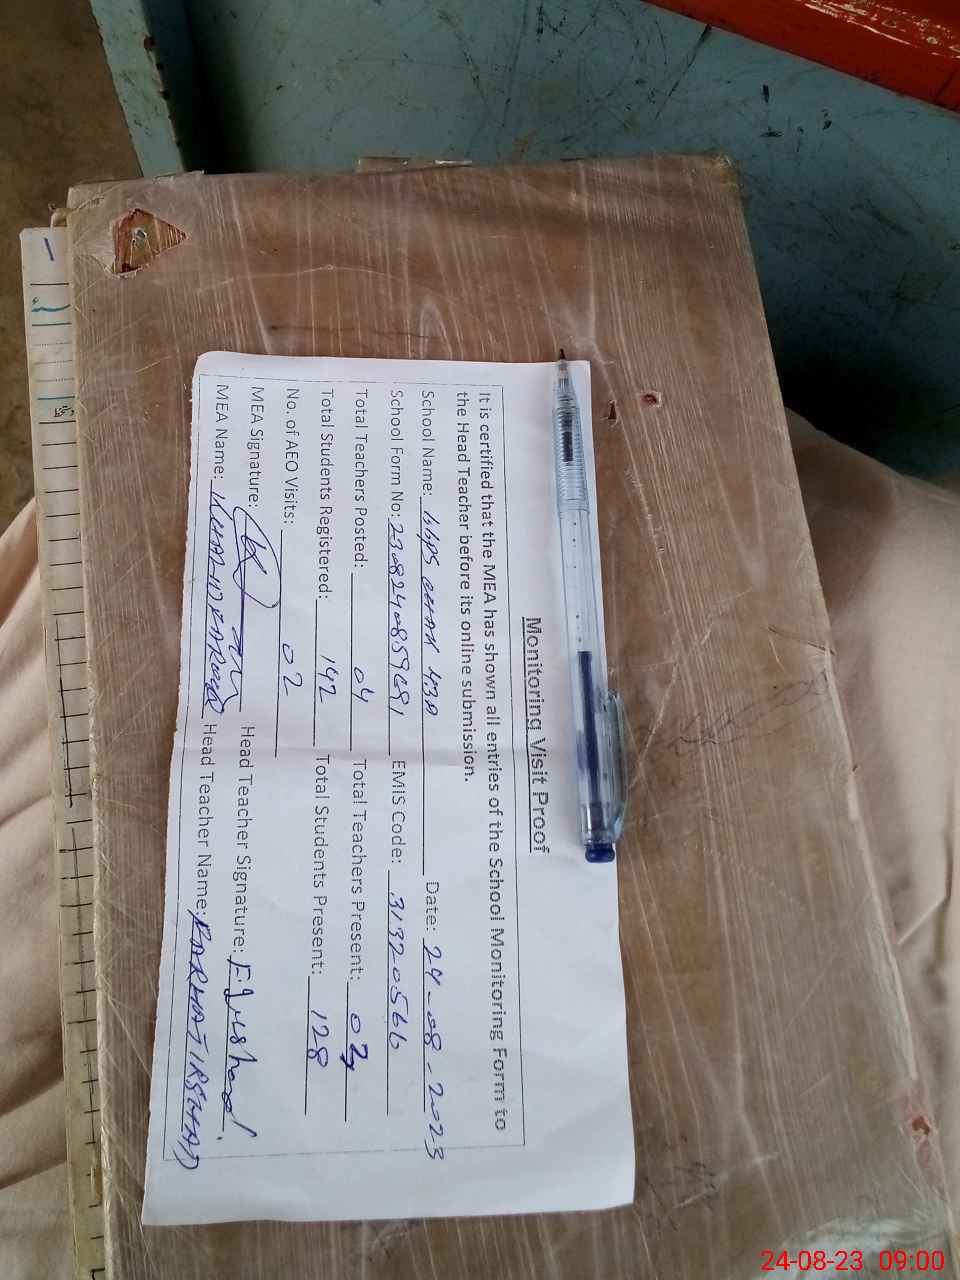 Monitoring Visit Proof
It is certified that the MEA has shown all entries of the School Monitoring Form to
the Head Teacher before its online submission.
School Name: CHAK 43A Date: 24-08-2023
School Form No: EMIS Code: 31320566
Total Teachers Posted: 04 Total Teachers Present:
Total Students Registered: 142 Total Students Present: 128
No. of AEO Visits: 02
MEA Signature: Head Teacher Signature: F. Irshad
MEA Name: Head Teacher Name: FARHAT IRSHAD
24-08-23 09:00